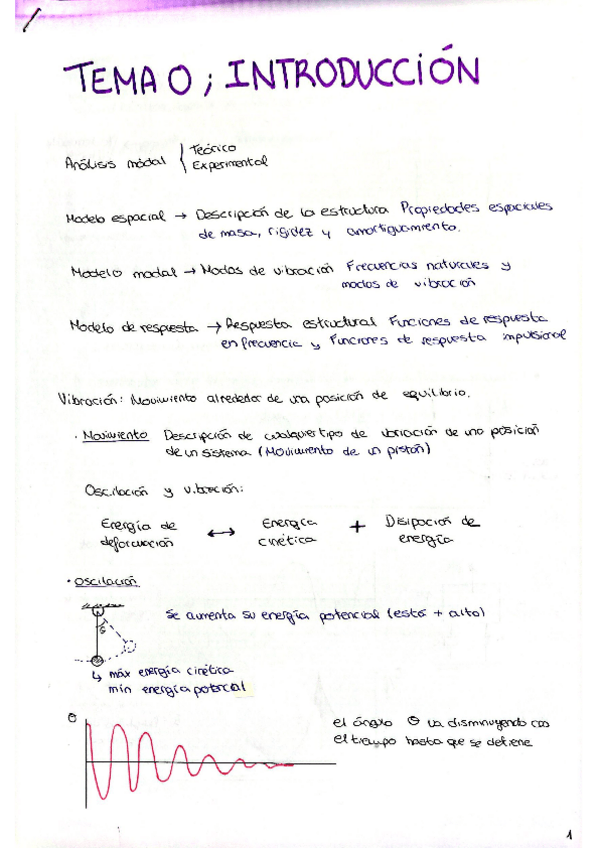 TEMA 0 ; INTRODUCCIÓN
Análisis modal { Teórico
Experimental
Modelo espacial → Descripción de la estructura Propiedades espaciales
de masa, rigidez y amortiguamiento.
Modelo modal → Modos de vibración Frecuencias naturales y
modos de vibración
Modelo de respuesta → Respuesta estructural Funciones de respuesta
en frecuencia y Funciones de respuesta impulsional
Vibración: Movimiento alrededor de una posición de equilibrio.
· Movimiento Descripción de cualquier tipo de variación de una posición
de un sistema (Movimiento de un pistón)
Oscilación y vibración:
Energía de deformación ↔ Energía cinética + Disipación de energía
· Oscilación
Se aumenta su energía potencial (está + alto)
θ
↳ máx energía cinética
mín energía potencial
θ
el ángulo θ va disminuyendo con
el tiempo hasta que se detiene
1